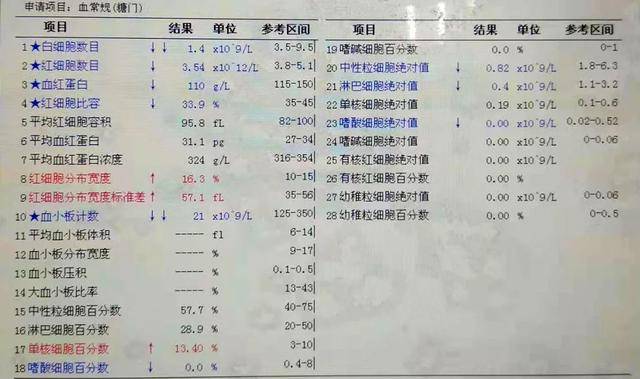 申请项目: 血常规(糖门)
项目 结果 单位 参考区间
1 ★白细胞数目 ↓↓ 1.4 x10^9/L 3.5-9.5
2 ★红细胞数目 ↓ 3.54 x10^12/L 3.8-5.1
3 ★血红蛋白 ↓ 110 g/L 115-150
4 ★红细胞比容 ↓ 33.9 % 35-45
5 平均红细胞容积 95.8 fL 82-100
6 平均血红蛋白 31.1 pg 27-34
7 平均血红蛋白浓度 324 g/L 316-354
8 红细胞分布宽度 ↑ 16.3 % 10-15
9 红细胞分布宽度标准差 ↑ 57.1 fL 35-56
10 ★血小板计数 ↓↓ 21 x10^9/L 125-350
11 平均血小板体积 ----- fl 6-14
12 血小板分布宽度 ----- % 9-17
13 血小板压积 ----- % 0.1-0.5
14 大血小板比率 ----- % 13-43
15 中性粒细胞百分数 57.7 % 40-75
16 淋巴细胞百分数 28.9 % 20-50
17 单核细胞百分数 ↑ 13.40 % 3-10
18 嗜酸细胞百分数 ↓ 0.0 % 0.4-8
项目 结果 单位 参考区间
19 嗜碱细胞百分数 0.0 % 0-1
20 中性粒细胞绝对值 ↓ 0.82 x10^9/L 1.8-6.3
21 淋巴细胞绝对值 ↓ 0.4 x10^9/L 1.1-3.2
22 单核细胞绝对值 0.19 x10^9/L 0.1-0.6
23 嗜酸细胞绝对值 ↓ 0.00 x10^9/L 0.02-0.52
24 嗜碱细胞绝对值 0.00 x10^9/L 0-0.06
25 有核红细胞绝对值 0.00 x10^9/L
26 有核红细胞百分数 0.00 %
27 幼稚粒细胞绝对值 0.00 x10^9/L 0-0.06
28 幼稚粒细胞百分数 0.00 % 0-0.5